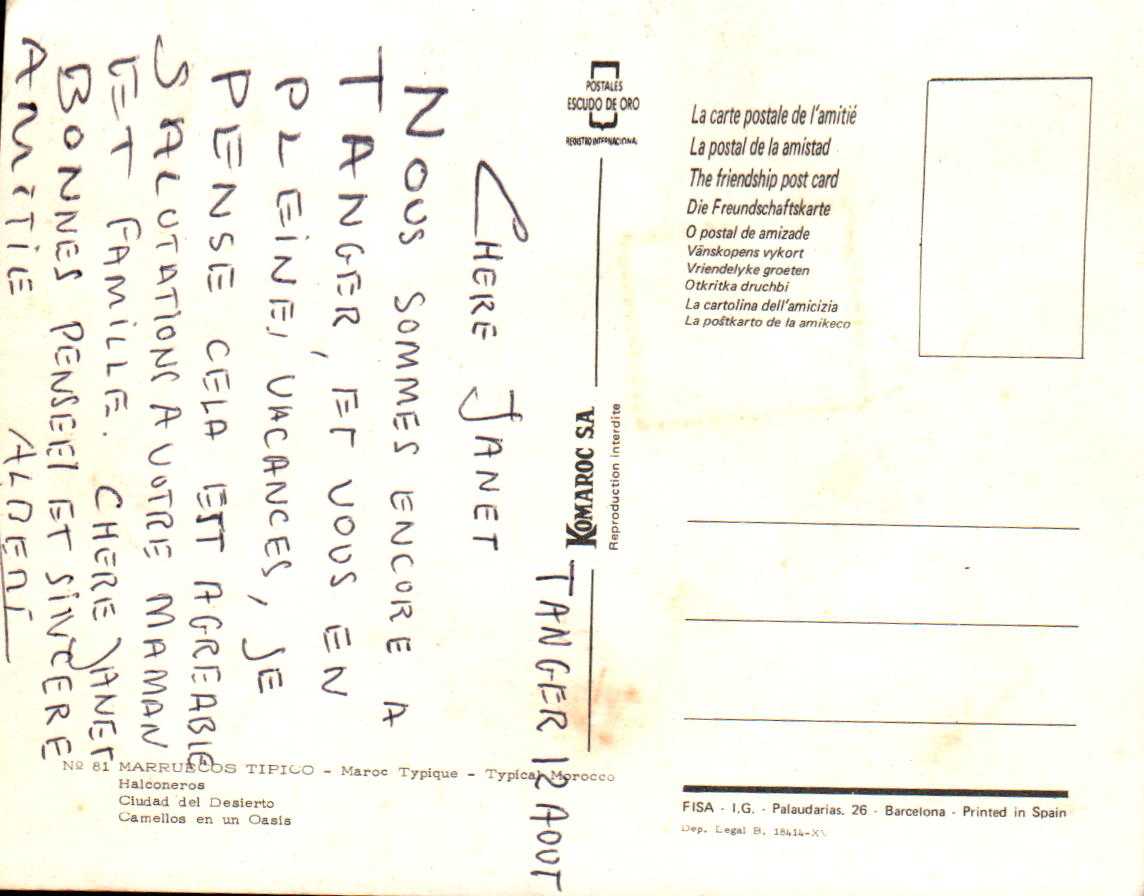 TANGER 12 AOUT
CHERE JANET
NOUS SOMMES ENCORE A
TANGER, ET VOUS EN
PLEINE, VACANCES, JE
PENSE CELA EST AGREABLE
SALUTATIONS A VOTRE MAMAN
ET FAMILLE. CHERE JANET
BONNES PENSEES ET SINCERE
AMITIE ALBERT
POSTALES
ESCUDO DE ORO
REGISTRO INTERNACIONAL
KOMAROC S.A.
Reproduction interdite
La carte postale de l'amitié
La postal de la amistad
The friendship post card
Die Freundschaftskarte
O postal de amizade
Vänskopens vykort
Vriendelyke groeten
Otkritka druchbi
La cartolina dell'amicizia
La poŝtkarto de la amikeco
Nº 81 MARRUECOS TIPICO - Maroc Typique - Typical Morocco
Halconeros
Ciudad del Desierto
Camellos en un Oasis
FISA - I.G. - Palaudarias, 26 - Barcelona - Printed in Spain
Dep. Legal B. 18414-XV